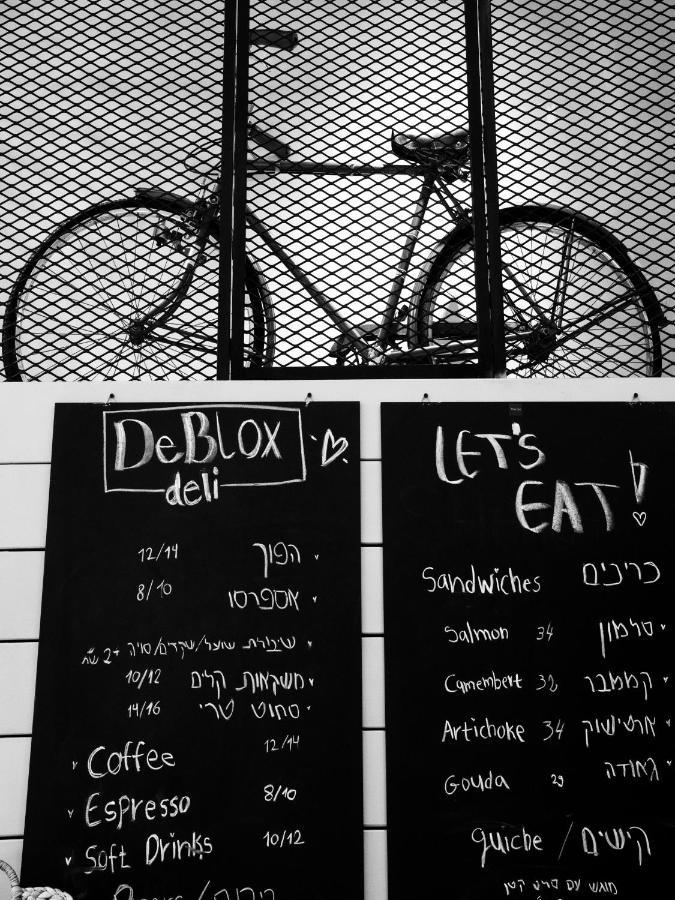 DeBlox
deli
הפוך 12/14
אספרסו 8/10
שיבולת שועל/שקדים/סויה +2 שח
משקאות קלים 10/12
סחוט טרי 14/16
Coffee 12/14
Espresso 8/10
Soft Drinks 10/12
LET'S
EAT!
Sandwiches כריכים
Salmon 34 סלמון
Camembert 32 קממבר
Artichoke 34 ארטישוק
Gouda 29 גאודה
quiche / קישים
מוגש עם סלט קטן